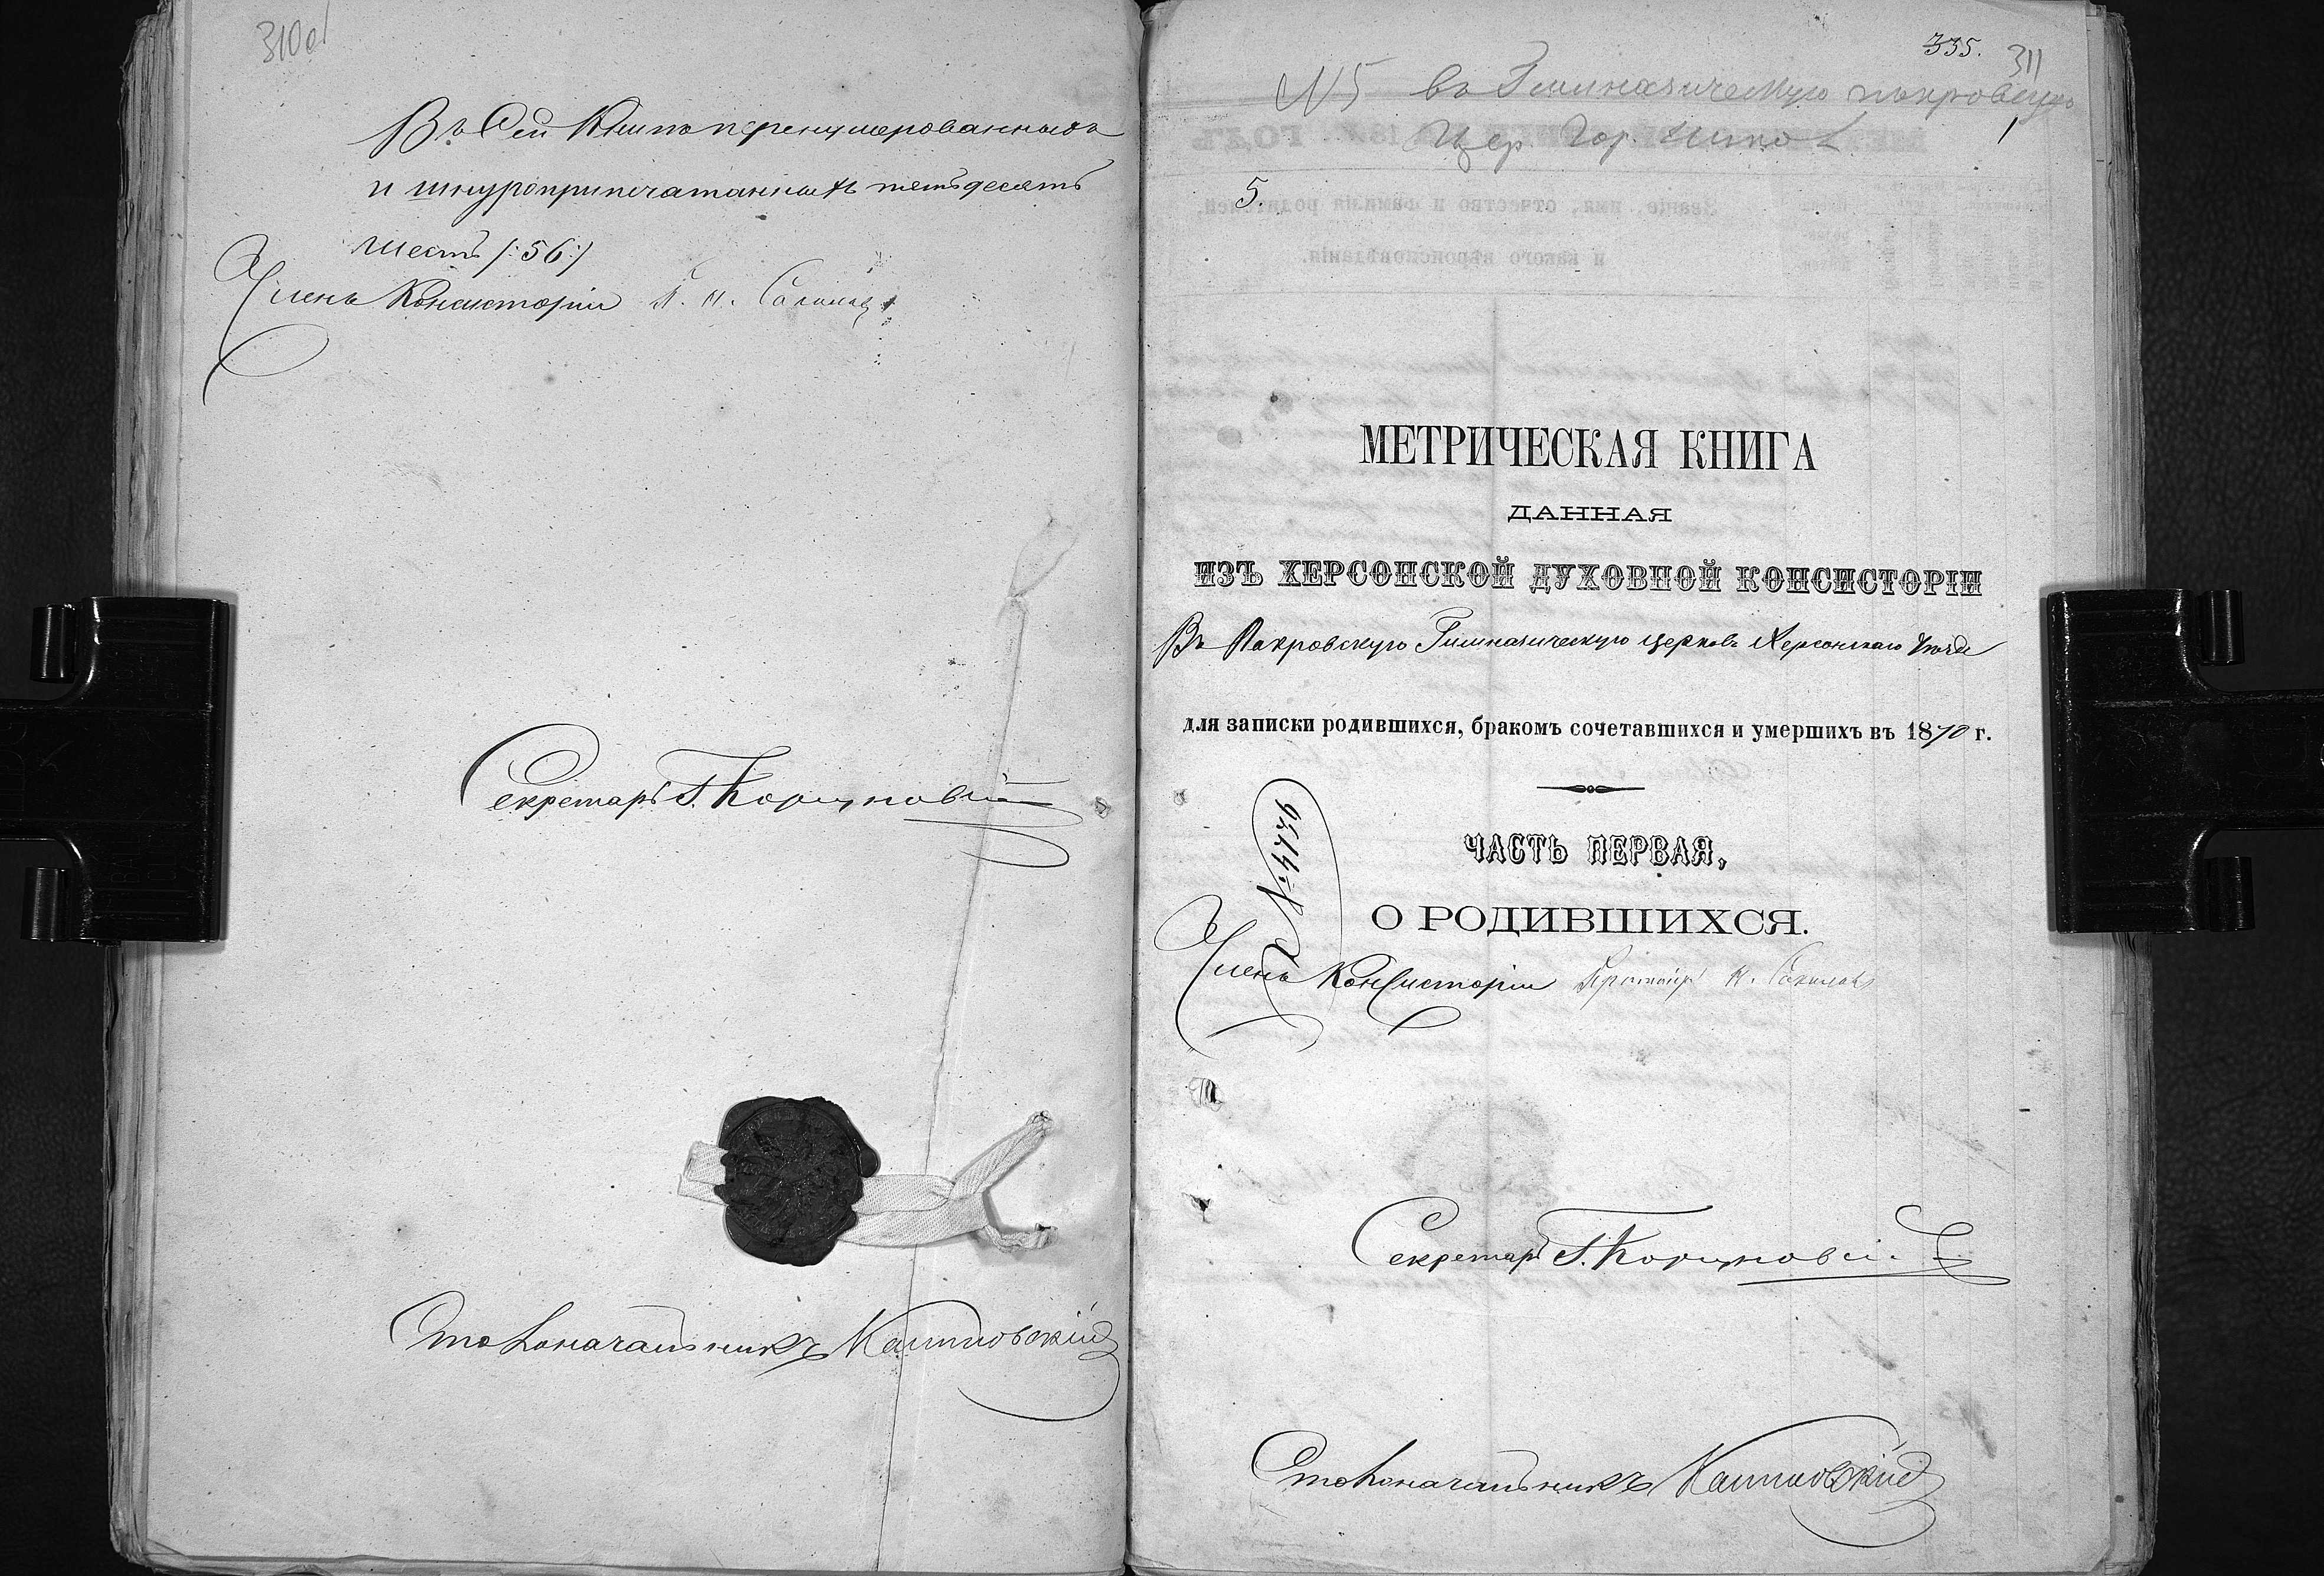 310об
Въ Сей Книгѣ перенумерованныхъ
и шнуроприпечатанныхъ пятьдесятъ
шесть /:56:/
Членъ Консисторіи П. Н.
Секретарь Г.
Столоначальникъ
335. 311
N5 въ Гимназическую покровскую
1
Цер. Гор.
5.
МЕТРИЧЕСКАЯ КНИГА
ДАННАЯ
ИЗЪ ХЕРСОНСКОЙ ДУХОВНОЙ КОНСИСТОРІИ
Въ Покровскую Гимназическую церковь Херсонскаго Уѣзда
для записки родившихся, бракомъ сочетавшихся и умершихъ въ 1870 г.
ЧАСТЬ ПЕРВАЯ,
О РОДИВШИХСЯ.
Членъ Консисторіи Протоіер.
Секретарь Г.
Столоначальникъ